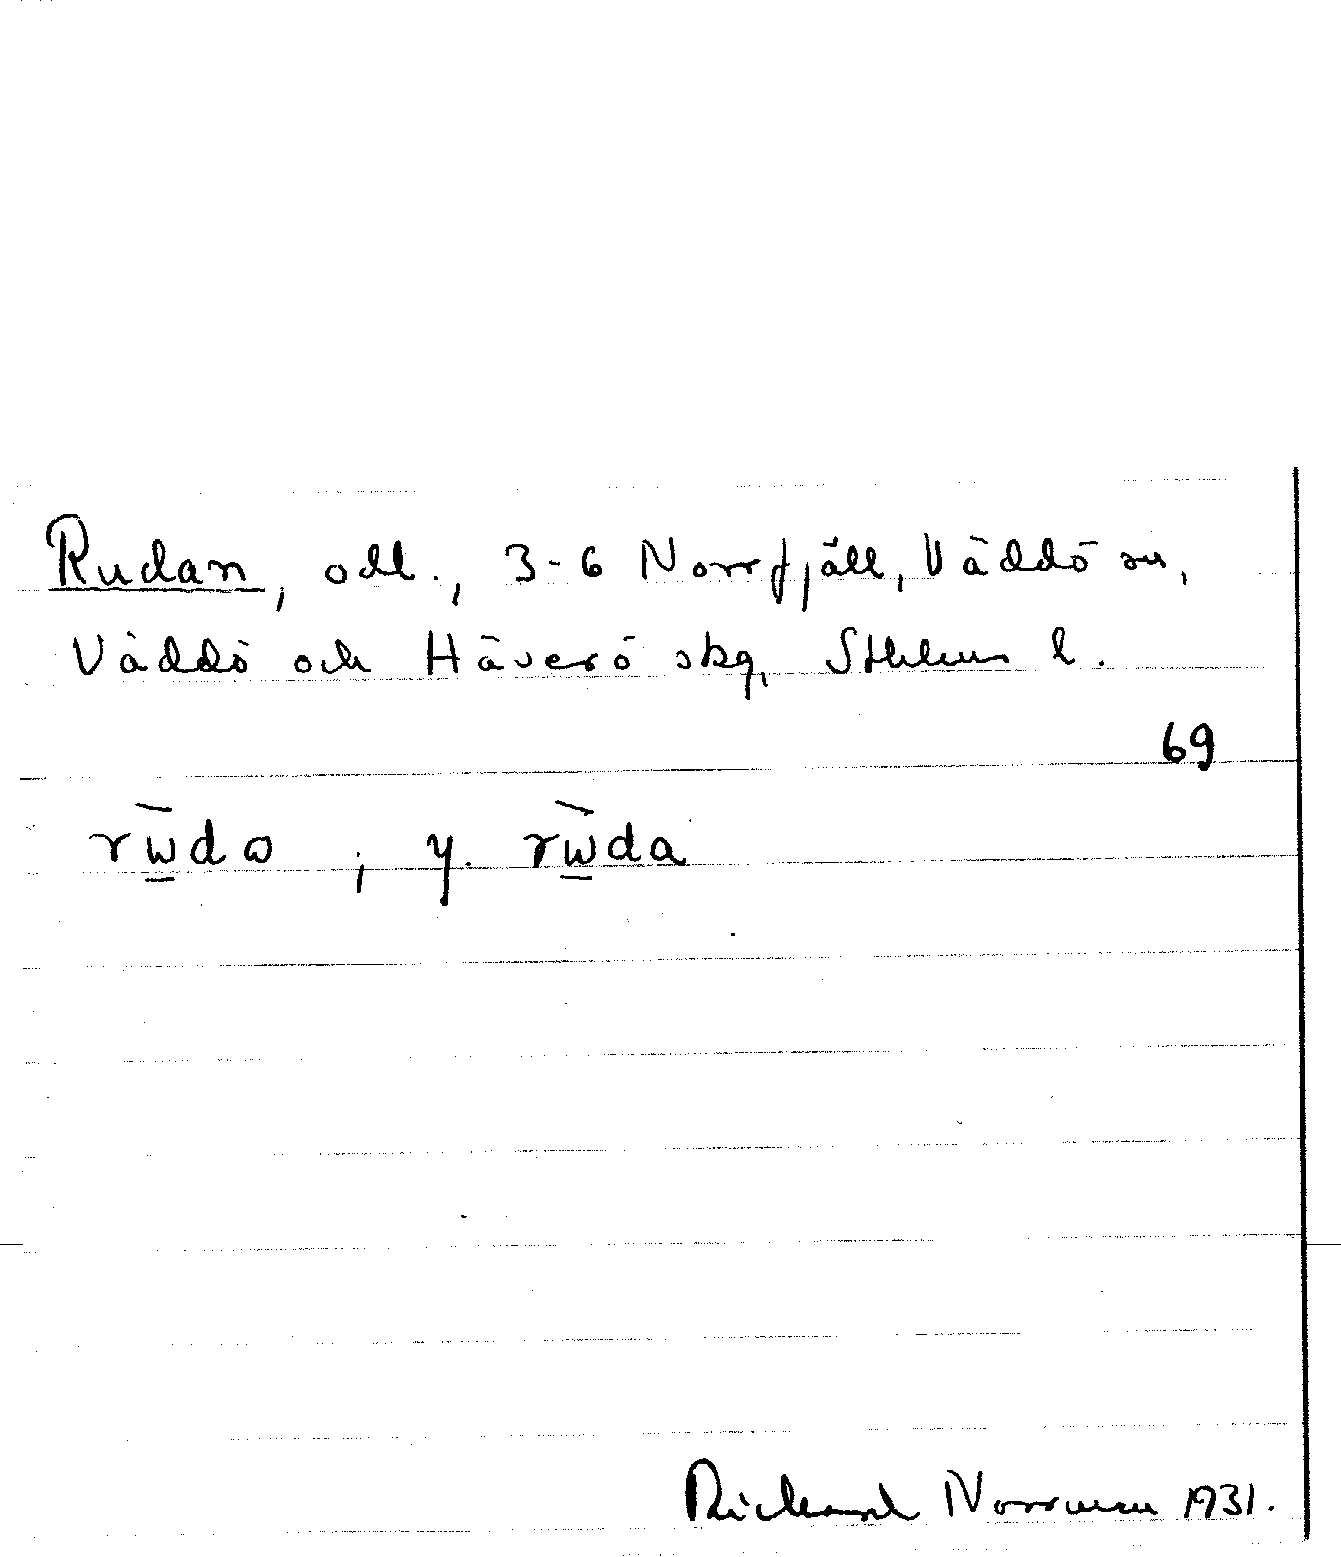 Rudan, odl., 3-6 Norrfjäll, Väddö sn,
Väddö och Häverö skg, Sthlms l.
69
rɯ̱̄dɷ , y. rɯ̱̀da
Rickard Norrman 1931.